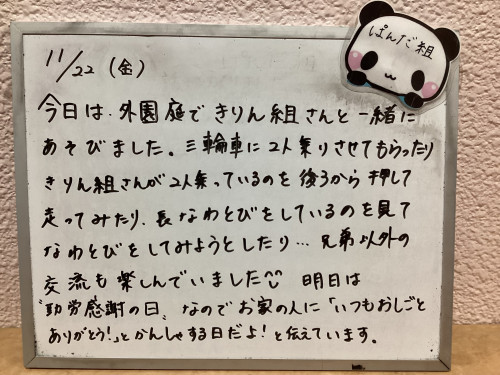 ぱんだ組
11/22（金）
今日は、外園庭できりん組さんと一緒に
あそびました。三輪車に2人乗りさせてもらったり
きりん組さんが2人乗っているのを後ろから押して
走ってみたり、長なわとびをしているのを見て
なわとびをしてみようとしたり…兄弟以外の
交流も楽しんでいました 明日は
"勤労感謝の日"なのでお家の人に「いつもおしごと
ありがとう!」とかんしゃする日だよ!と伝えています。